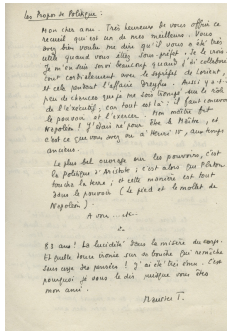 Les Propos de Politique :
Mon cher ami. Très heureux de vous offrir ce
recueil qui est un de mes meilleurs. Vous
avez bien voulu me dire qu'il vous a été très
utile quand vous étiez sous-préfet. Je le crois.
Je m'en suis servi beaucoup quand j'ai collaboré
tout cordialement avec le sous-préfet de Lorient,
et cela pendant l'affaire Dreyfus. Aussi y a-t-il
peu de chances que je me sois trompé sur le rôle
de l'exécutif ; car tout est là : il faut concevoir
le pouvoir et l'exercer. Mon maître fut
Napoléon ! J'étais né pour être du Maître, et
c'est ce que vous avez vu à Henri IV, au temps
ancien.
Le plus bel ouvrage sur les pouvoirs, c'est
la Politique d'Aristote ; c'est alors que Platon
touche la terre ; et cette manière est tout
dans le pouvoir (le pied et le mollet de
Napoléon).
A vous
83 ans ! La lucidité dans la misère du corps.
Et quelle torture ironie sur sa bouche qui remâche
sans cesse des pensées ! J'ai été très ému. C'est
pourquoi je vous le dis puisque vous êtes
mon ami.
Maurice T.